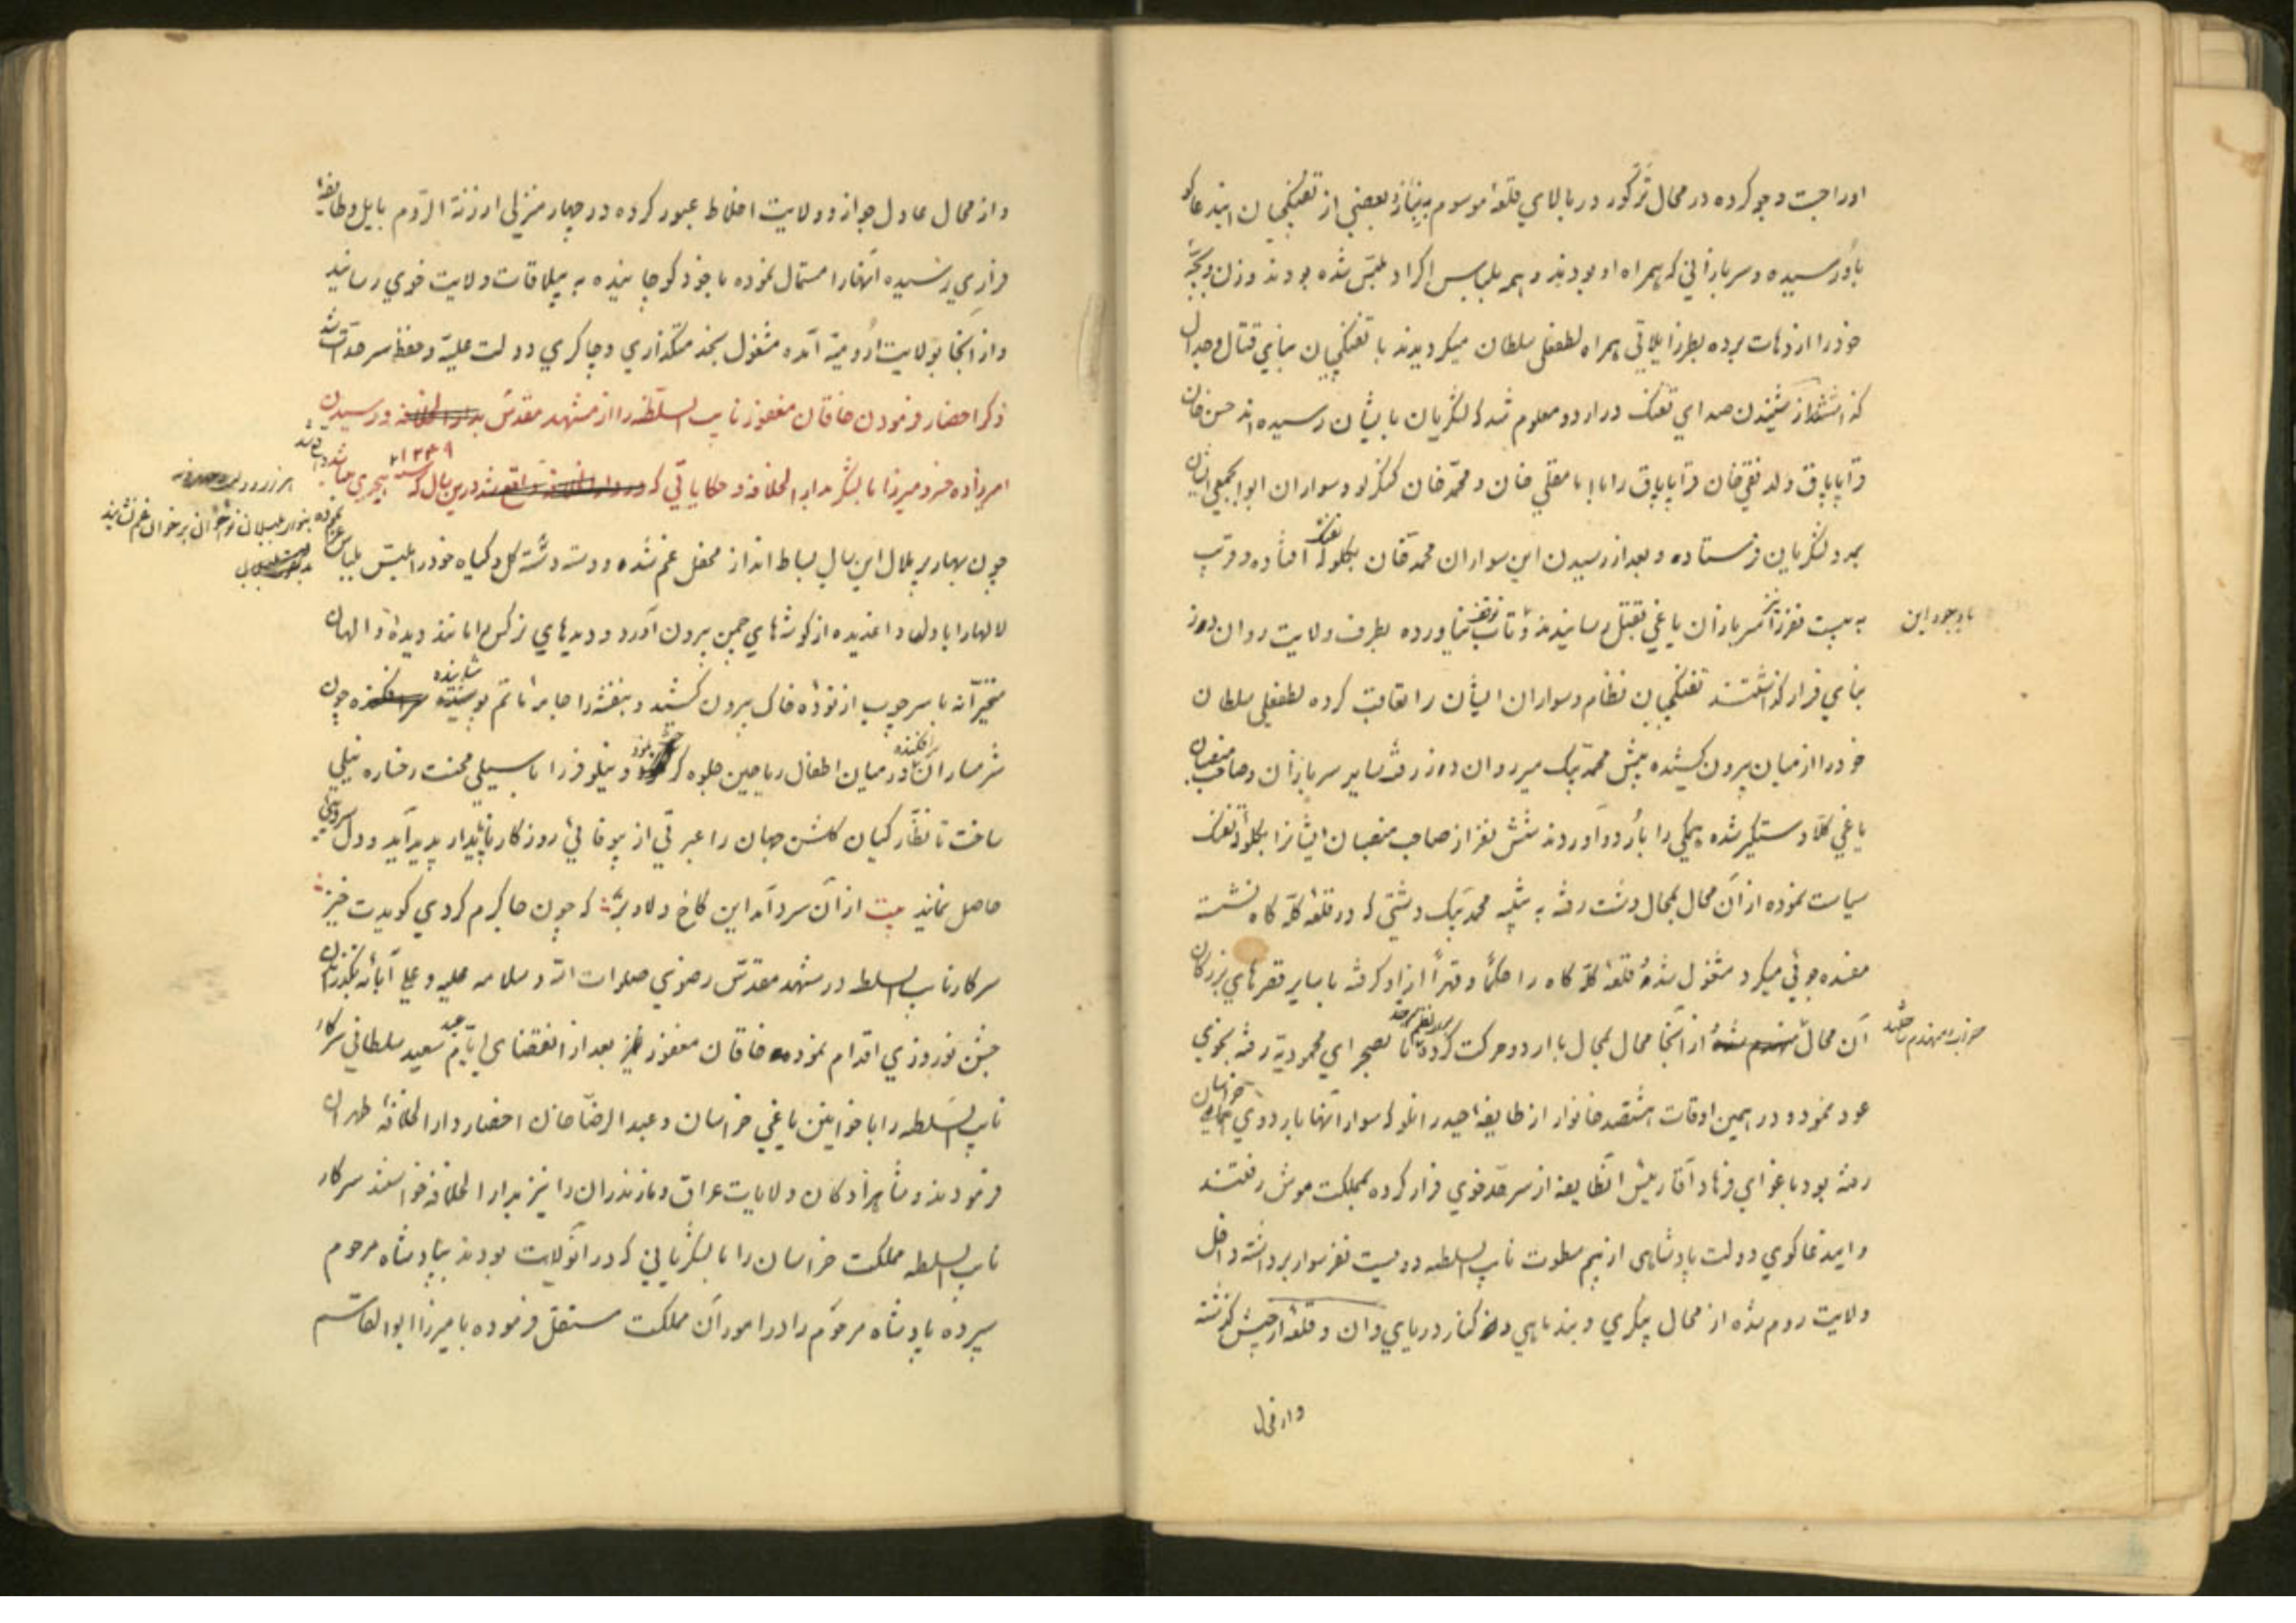 اورا جست و جو کرده در محال ترکور در بالای قلعه موسوم به بناز و بعضی از تفنکچیان
باو رسیده و سربازانی که همراه او بودند و همه بلباس اکراد ملبس شده بودند و زن و بچه
خود را از دهات برده بطرز ایلاتی همراه لطفعلی سلطان میکردیدند با تفنکچیان بنای قتال و جدال
از شنیدن صدای تفنک در اردو معلوم شد که لشکریان بایشان رسیده اند حسن خان
قراپاپاق ولد نقی خان قراپاپاق را با امامقلی خان و محمد خان کنکرلو و سواران ابوابجمعی ایشان
بمدد لشکریان فرستاده و بعد از رسیدن این سواران محمد خان بکلوله تفنک افتاده و قریب
به بیست نفر از سربازان یاغی بقتل رسانیدند و تاب توقف نیاورده بطرف ولایت روان دوز
با وجود این
بنای فرار کذاشتند تفنکچیان نظام و سواران ایشان را تعاقب کرده لطفعلی سلطان
خود را از میان بیرون کشیده پیش محمد بیک میر روان دوز رفته سایر سربازان و صاحب منصبان
یاغی کلا دستکیر شده همکی را باردو آوردند شش نفر از صاحب منصبان ایشانرا بکلوله تفنک
سیاست نموده از آن محال بمحال دشت رفته به تنبیه محمد بیک دشتی که در قلعه کله کاه نشسته
مفسده جوئی میکرد مشغول شده قلعه کله کاه را حکما و قهرا از او کرفته با سایر قصرهای بزرکان
آن محال منهدم شده از آنجا محال بمحال با اردو حرکت کرده تا بصحرای محمودیه رفته بخوی
خراب و منهدم ساخته
عود نمود و در همین اوقات هشتصد خانوار از طایفه حیدرانلو که سوار آنها باردوی خراسان
رفته بود باغوای فرهاد آقا ریش انطایفه از سرحد خوی فرار کرده بمملکت موش رفتند
و ایندعاکوی دولت پادشاهی از بیم سطوت نایب السلطه دویست نفر سوار برداشته داخل
ولایت روم شده از محال بیکری و بند ماهی و از کنار دریای وان و قلعه ارجیش کذشته
و از محال عادل جواز و ولایت اخلاط عبور کرده در چهار منزلی ارزنة الروم بایل و طایفه
فراری رسیده آنهارا مستمال نموده با خود کوچانیده به ییلاقات ولایت خوی رسانید
و از آنجا بولایت ارومیه آمده مشغول بخدمتکذاری و چاکری دولت علیه و حفظ سرحدات شد
ذکر احضار فرمودن خاقان مغفور نایب السلطه را از مشهد مقدس بدارالخلافه و رسیدن
امیرزاده خسرو میرزا با لشکر بدارالخلافه و حکایاتی که در دارالخلافه واقع شد در این سال که سنه ۱۲۴۹ هجری باشد
چون بهار پر ملال این سال بساط انداز محفل غم شده و دسته دسته کل و کیاه خود را ملبس بلباس
نموده بنوا بلبلان نوحه خوان بر خوان غم نشانید
لالها را با دلها داغدیده از کوشهای چمن بیرون آورد و دیدهای نرکس را مانند دیده والهان
متحیرانه با سر چوب از توده خاک بیرون کشید و بنفشه را جامه ماتم پوشانیده چون
شرمساران در میان اطفال ریاحین جلوه کر نمود و نیلوفر را با سیلی محنت رخساره نیلی
ساخت تا نظارکیان کلشن جهان را عبرتی از بیوفائی روزکار ناپایدار پدید آید و دل سردی
حاصل نمایند بیت از آن سرد آمد این کاخ دلاویز که چون جا کرم کردی کویدت خیز
سرکار نایب السلطه در مشهد مقدس رضوی صلوات الله و سلامه علیه و علی آبائه
جشن نوروزی اقدام نموده خاقان مغفور نیز بعد از انقضای ایام عید سعید سلطانی سرکار
نایب السلطه را با خوانین یاغی خراسان و عبدالرضا خان احضار دارالخلافه طهران
فرمودند و شاهزادکان ولایات عراق و مازندران را نیز بدارالخلافه خواستند سرکار
نایب السلطه مملکت خراسان را با لشکریانی که در آنولایت بودند بپادشاه مرحوم
سپرده پادشاه مرحوم را در امور آن مملکت مستقل فرموده با میرزا ابوالقاسم